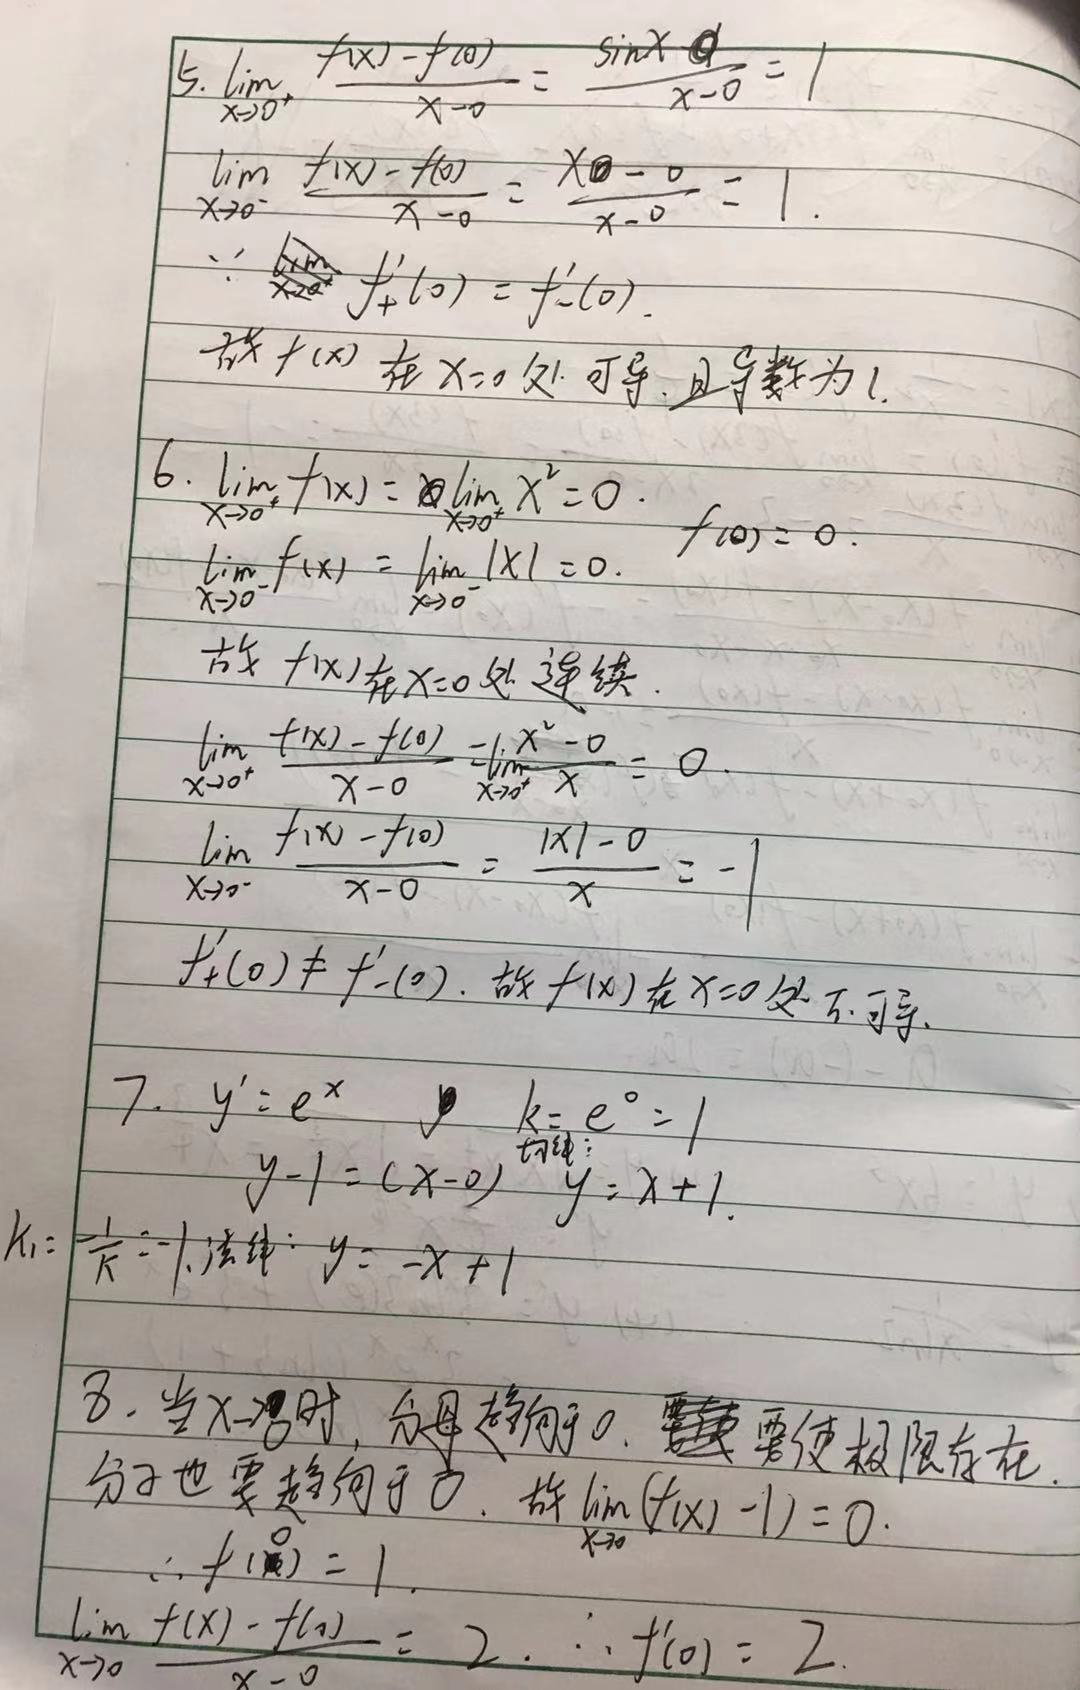 5. lim x→0⁺ (f(x)-f(0))/(x-0) = sinx/(x-0) = 1
lim x→0⁻ (f(x)-f(0))/(x-0) = (x-0)/(x-0) = 1.
∵ f'₊(0) = f'₋(0).
故 f(x) 在 x=0 处可导.且导数为1.
6. lim x→0⁺ f(x) = lim x→0⁺ x² = 0.
f(0) = 0.
lim x→0⁻ f(x) = lim x→0⁻ |x| = 0.
故 f(x) 在 x=0 处 连续.
lim x→0⁺ (f(x)-f(0))/(x-0) = lim x→0⁺ (x²-0)/x = 0.
lim x→0⁻ (f(x)-f(0))/(x-0) = (|x|-0)/x = -1
f'₊(0) ≠ f'₋(0). 故 f(x) 在 x=0 处不可导.
7. y' = eˣ k = e⁰ = 1
y-1 = (x-0) 切线: y = x+1.
k₁ = -1/k = -1. 法线: y = -x+1
8. 当 x→0时, 分母趋向于0. 要使极限存在.
分子也要趋向于0. 故 lim x→0 (f(x)-1) = 0.
∴ f(0) = 1.
lim x→0 (f(x)-f(0))/(x-0) = 2. ∴ f'(0) = 2.